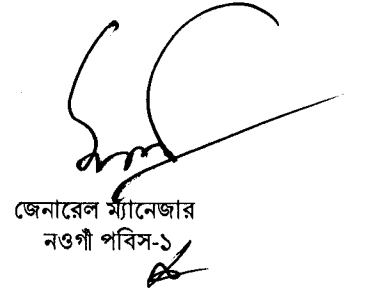 জেনারেল ম্যানেজার
নওগাঁ পবিস-১